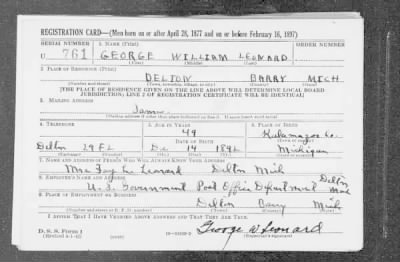 REGISTRATION CARD—(Men born on or after April 28, 1877 and on or before February 16, 1897)
SERIAL NUMBER 1. NAME (Print) ORDER NUMBER
U 761 GEORGE WILLIAM LEONARD
(First) (Middle) (Last)
2. PLACE OF RESIDENCE (Print)
DELTON BARRY MICH
(Number and street) (Town, township, village, or city) (County) (State)
[THE PLACE OF RESIDENCE GIVEN ON THE LINE ABOVE WILL DETERMINE LOCAL BOARD
JURISDICTION; LINE 2 OF REGISTRATION CERTIFICATE WILL BE IDENTICAL]
3. MAILING ADDRESS
Same
[Mailing address if other than place indicated on line 2. If same insert word same]
4. TELEPHONE 5. AGE IN YEARS 6. PLACE OF BIRTH
49 Kalamazoo Co.
DATE OF BIRTH (Town or county)
Delton 29 F2 Dec 14 1892 Michigan
(Exchange) (Number) (Mo.) (Day) (Yr.) (State or country)
7. NAME AND ADDRESS OF PERSON WHO WILL ALWAYS KNOW YOUR ADDRESS
Mrs Leonard Delton Mich
8. EMPLOYER'S NAME AND ADDRESS
U.S. Government Post Office Department Delton Mich
9. PLACE OF EMPLOYMENT OR BUSINESS
Delton Barry Mich
(Number and street or R. F. D. number) (Town) (County) (State)
I AFFIRM THAT I HAVE VERIFIED ABOVE ANSWERS AND THAT THEY ARE TRUE.
D. S. S. Form 1
(Revised 4-1-42) George W Leonard
(Registrant's signature)